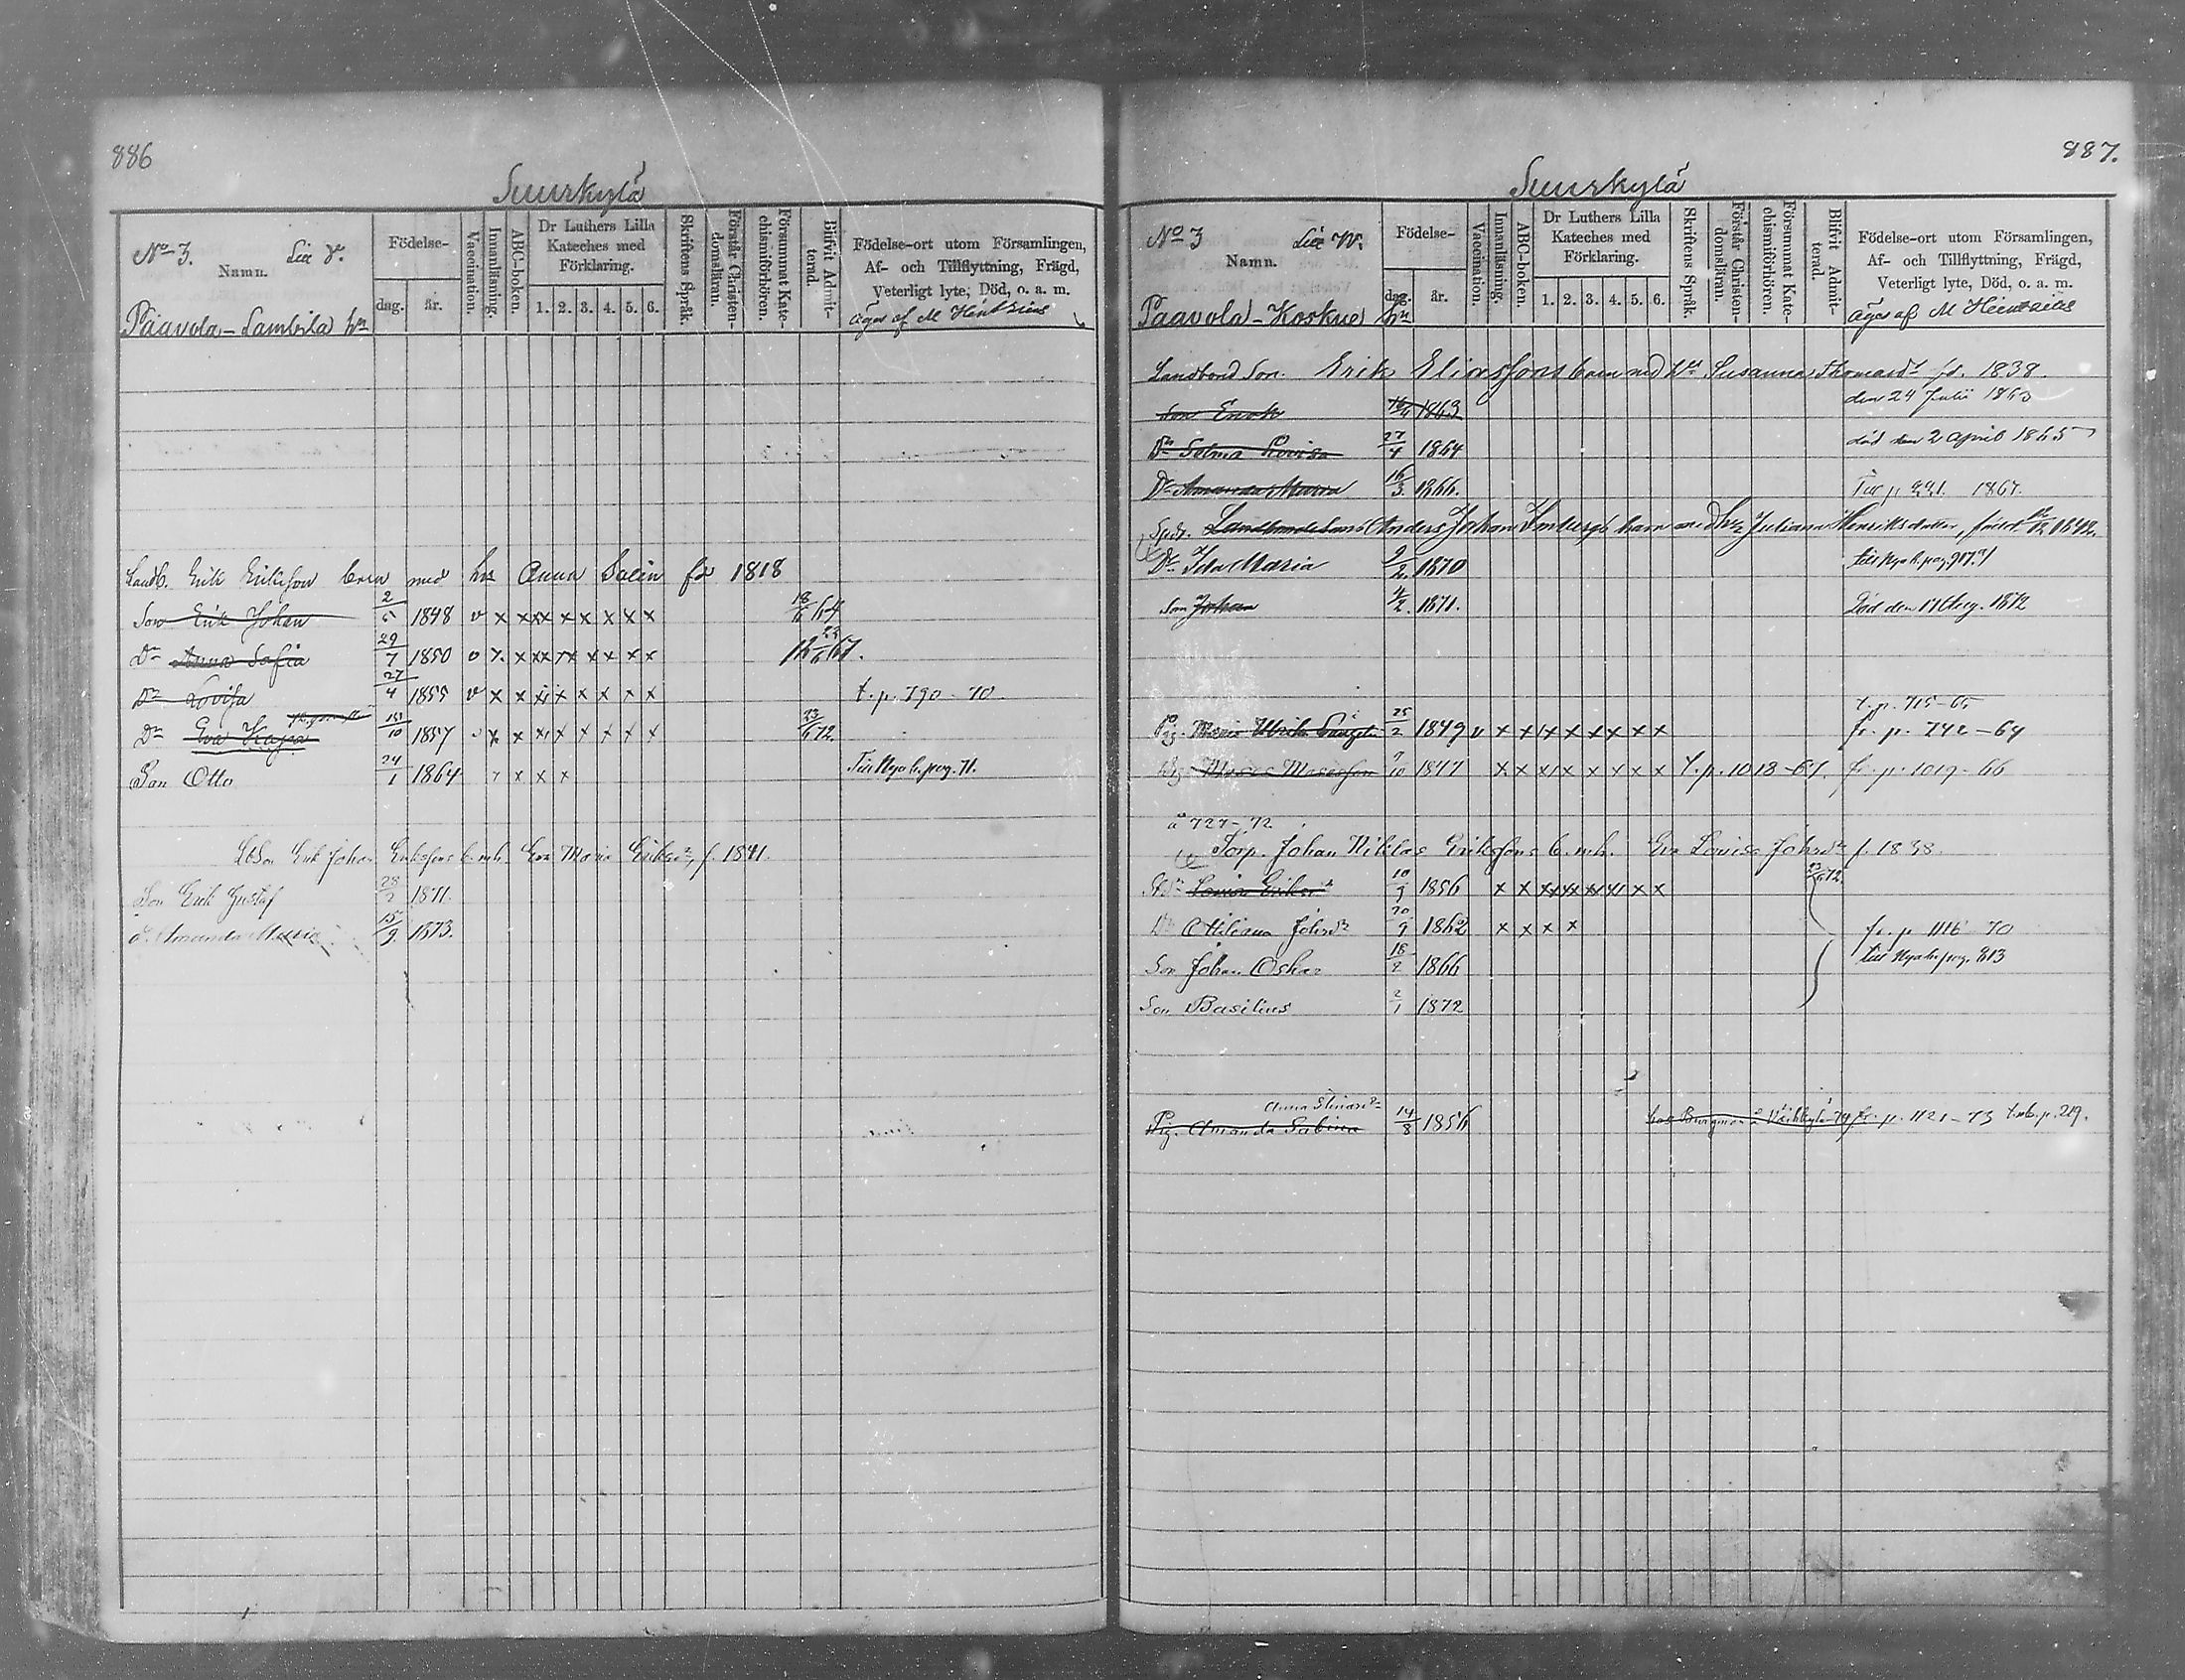 886
Suurkylä
No 3. Litt V.
Namn.
Födelse-
dag. år.
Vaccination.
Innanläsning.
ABC-boken.
Dr Luthers Lilla
Kateches med
Förklaring.
1. 2. 3. 4. 5. 6.
Skriftens Språk.
Förstår Christen-
domsläran.
Försummat Kate-
chismiförhören.
Blifvit Admit-
terad.
Födelse-ort utom Församlingen,
Af- och Tillflyttning, Frägd,
Veterligt lyte, Död, o. a. m.
Paavola-Lambila hn
äges af M Heintzius
Landb. Erik Eriksson barn med hu Anna Salin fd 1818
Son Erik Johan 2/5 1848 v x x xx x x x x x 18/6 64
Dr Anna Sofia 29/7 1850 v x x x x x x x x
Dr Lovisa 27/4 1855 v x x x x x x x x t. p. 790 - 70
Dr Eva Kaja 15/10 1857 x x x x x x x x 23/6 72
Son Otto 24/1 1864 x x x Till Nya b. pag. 71.
Lbson Erik Johan Erikssons b. m. h. Eva Maria Eriksdr f. 1841.
Son Erik Gustaf 28/2 1871.
d. Amanda Maria 15/9 1873.
887.
Suurkylä
No 3 Litt W.
Namn.
Födelse-
dag. år.
Vaccination.
Innanläsning.
ABC-boken.
Dr Luthers Lilla
Kateches med
Förklaring.
1. 2. 3. 4. 5. 6.
Skriftens Språk.
Förstår Christen-
domsläran.
Försummat Kate-
chismiförhören.
Blifvit Admit-
terad.
Födelse-ort utom Församlingen,
Af- och Tillflyttning, Frägd,
Veterligt lyte, Död, o. a. m.
Paavola-Koskue hn
äges af M Heintzius
Landbond Son Erik Eliassons barn med hu Susanna Thomasdr fd. 1838.
Son Enok 1863 den 24 Julii 1863
Dr Selma Lovisa 27/4 1864 död den 2 April 1865
Dr Amanda Maria 16/3 1866. 1867.
Landbonde Sons Anders Johan barn med hu Juliana Henriksdotter, född 1842.
Dr Ida Maria 9/2. 1870 till Nya b. pag. 917
Son Johan 4/2. 1871. Död den 17 Aug. 1872
t. p. 715-65
Pig. Maria Ulrika 25/2 1849 v x x x x x x x x fr. p. 742-64
9/10 1847 x x x x x x x x t. p. 1018-67. fr. p. 1019-66
å 727-72
Torp. Johan Niklas Erikssons b. m. h. Eva Lovisa Johsdr f. 1838.
Lovisa Eriksdr 10/9 1856 x x x x x x x x 23/6 72
Dr Otiliana Johsdr 20/9 1862 x x x x fr. p. 1116 70
Son Johan Oskar 18/2 1866 till Nya b. pag. 813
Son Basilius 2/1 1872
Anna Stinasdr
Pig. Amanda Sabina 14/8 1856 fr. p. 1121-73 t. nb. p. 219.